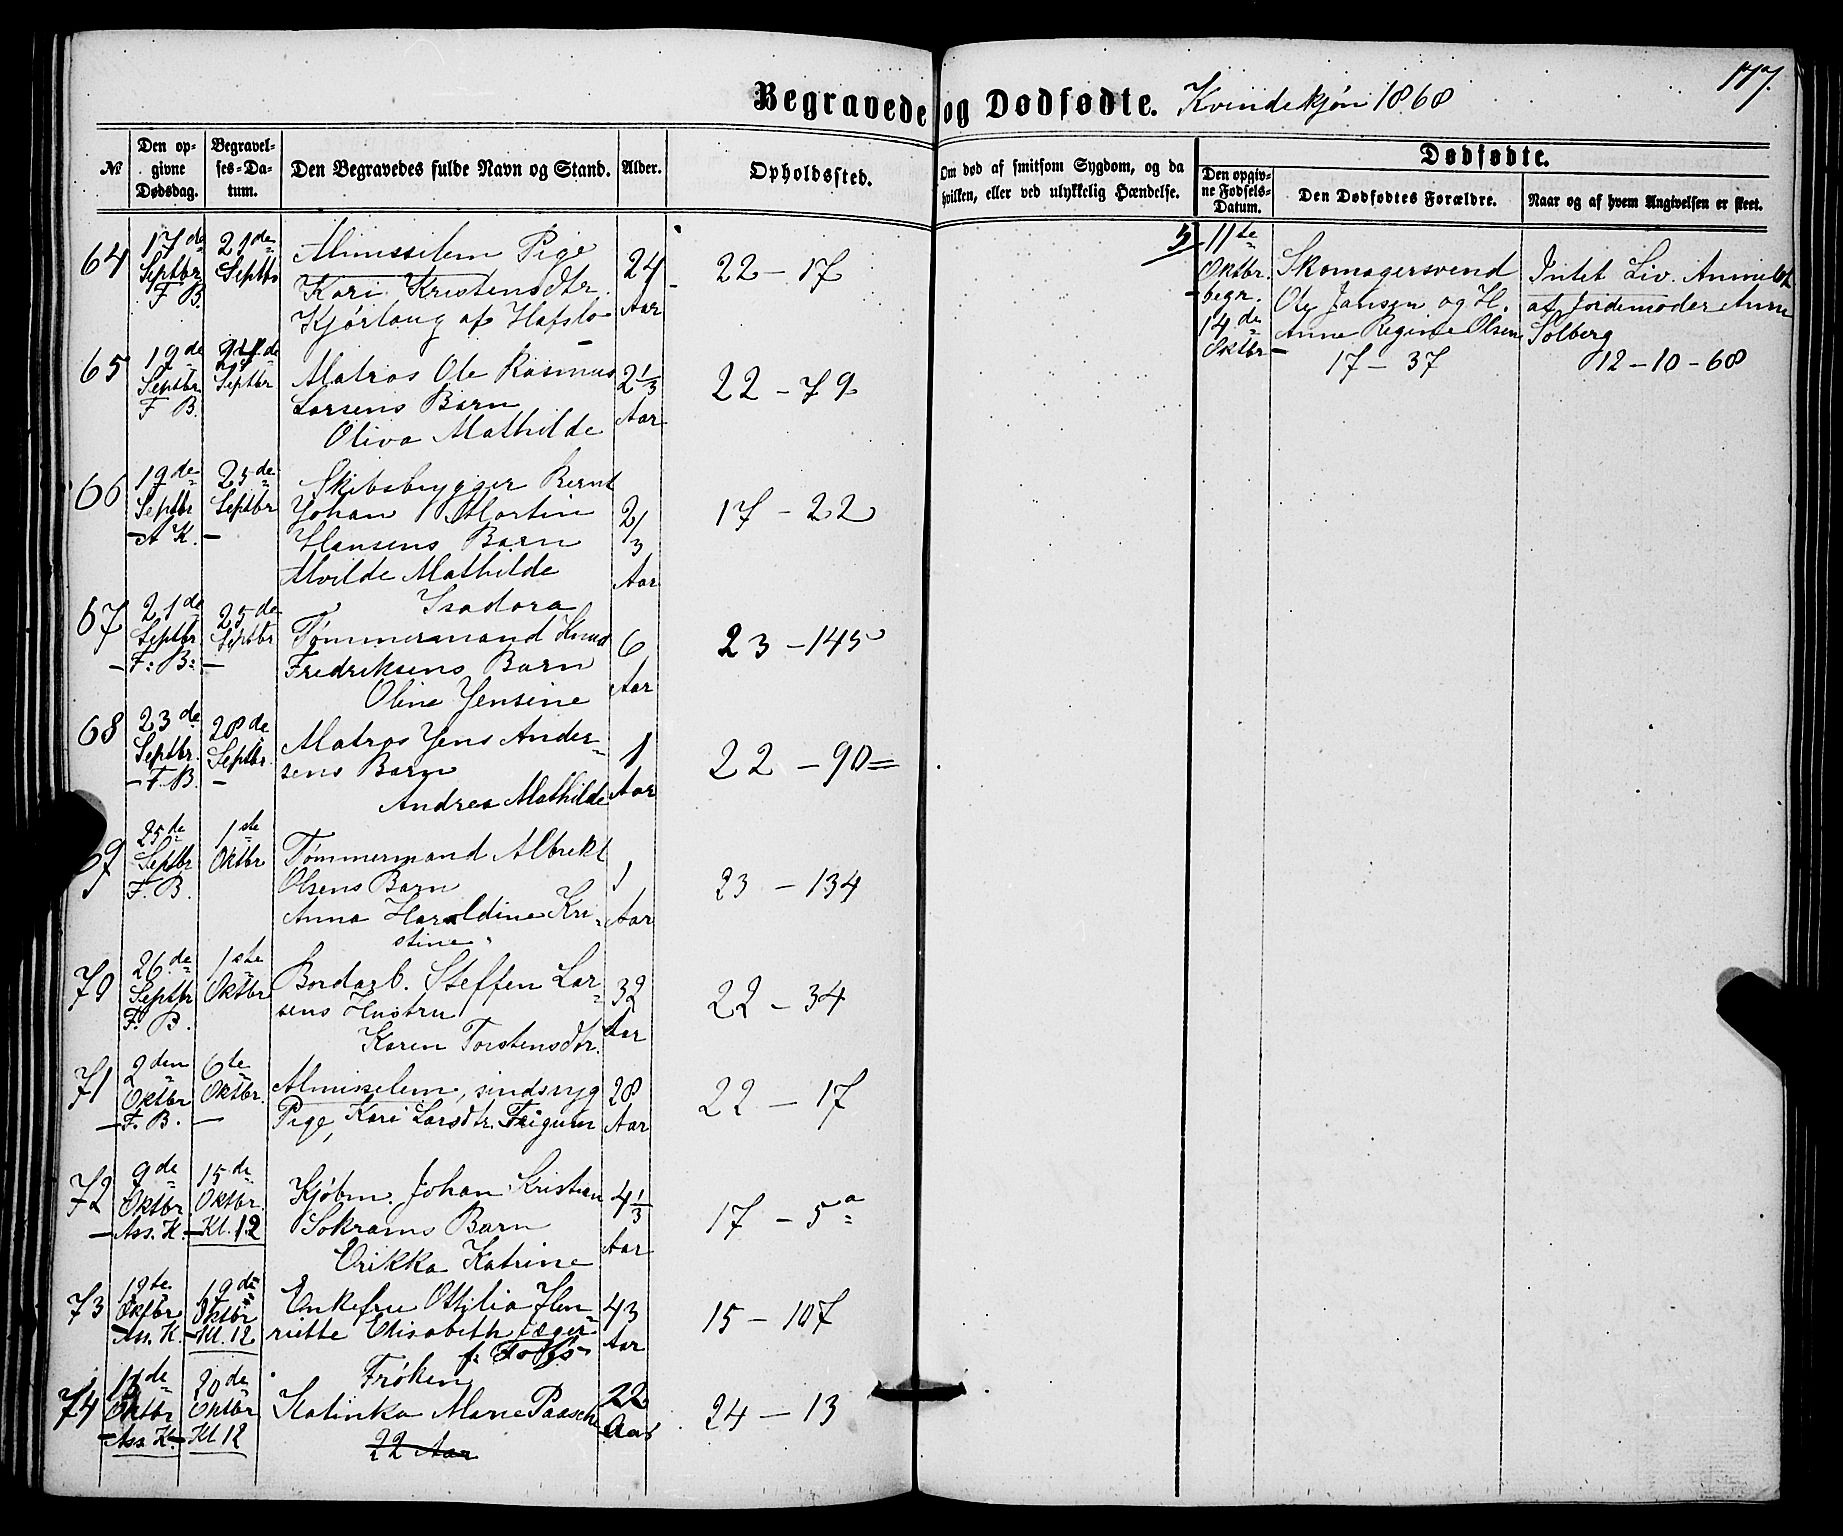 177.
Begravede og Dødfødte. Kvindekjøn 1868
№
Den opgivne Dødsdag.
Begravelses-Datum.
Den Begravedes fulde Navn og Stand.
Alder.
Opholdssted.
Om død af smitsom Sygdom, og da hvilken, eller ved ulykkelig Hændelse.
Dødfødte.
Den opgivne Fødsels-Datum.
Den Dødfødtes Forældre.
Naar og af hvem Angivelsen er skeet.
64 17de Septbr F. B. 21de Septbr
Almisselem Pige
Kari Kristensdtr.
Kjørlaug af Hafslo
24 Aar
22 - 17
65 19de Septbr F. B. 24de Septbr
Matros Ole Rasmus
Larsens Barn
Oliva Mathilde
2 1/3 Aar
22 - 79
66 19de Septbr A K. 25de Septbr
Skibsbygger Bernt
Johan Martin
Hansens Barn
Alvilde Mathilde
Isadora
2/3 Aar
17 - 22
67 21de Septbr F. B. 25de Septbr
Tømmermand Knud
Fredriksens Barn
Oline Jensine
6 Aar
23 - 145
68 23de Septbr. F. B. 28de Septbr.
Matros Jens Ander-
sens Barn
Andrea Mathilde
1 Aar
22 - 90
69 25de Septbr F. B. 1ste Oktbr
Tømmermand Albrekt
Olsens Barn
Anna Haraldine Kri-
stine
1 Aar
23 - 134
70 26de Septbr F. B. 1ste Oktbr
Bordarb. Steffen Lar-
sens Hustru
Karen Torstensdtr.
32 Aar
22 - 34
71 2den Oktbr F. B. 6te Oktbr.
Almisselem, sindssyg
Pige, Kari Larsdtr.
28 Aar
22 - 17
72 9de Oktbr. Ass. K. 15de Oktbr. Kl. 12
Kjøbm. Johan Kristian
Sokrams Barn
Erikka Katrine
4 1/3 Aar
17 - 5a
73 12te Oktbr Ass. K. 19de Oktbr Kl. 12
Enkefru Ottilia Hen-
riette Elisabeth
43 Aar
15 - 107
74 Oktbr Ass. K. 20de Oktbr Kl 12
Frøken
Katinka Marie Paasche
22 Aar
22 Aar
24 - 13
5 11te Oktbr. begr. 14de Oktbr
Skomagersvend
Ole Jansen og H.
Anne Regine Olsen
17 - 37
Intet Liv. Anmeldt
af Jordemoder Anne
Solberg
12-10-68